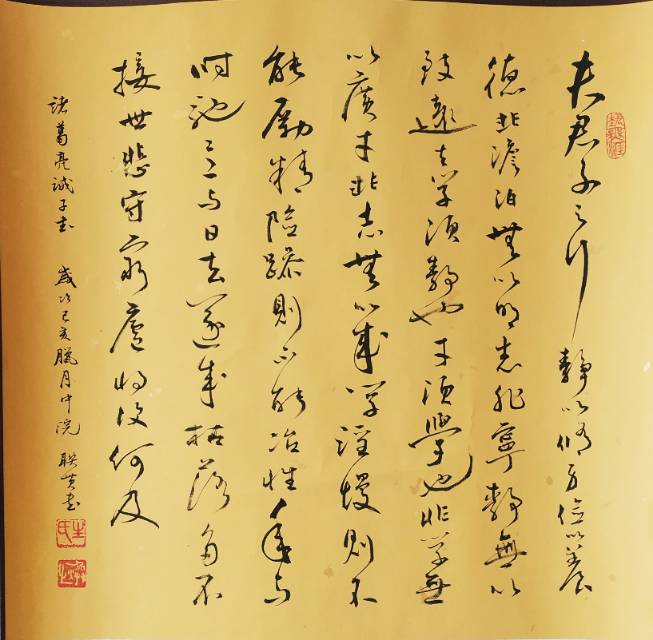 夫君子之行静以修身俭以养
德非澹泊無以明志非寧静無以
致遠夫学须静也才须學也非学無
以廣才非志無以成学淫慢则不
能励精險躁则不能冶性年与
时驰意与日去遂成枯落多不
接世悲守穷廬将复何及
诸葛亮诫子书 岁次己亥臘月中浣 联书